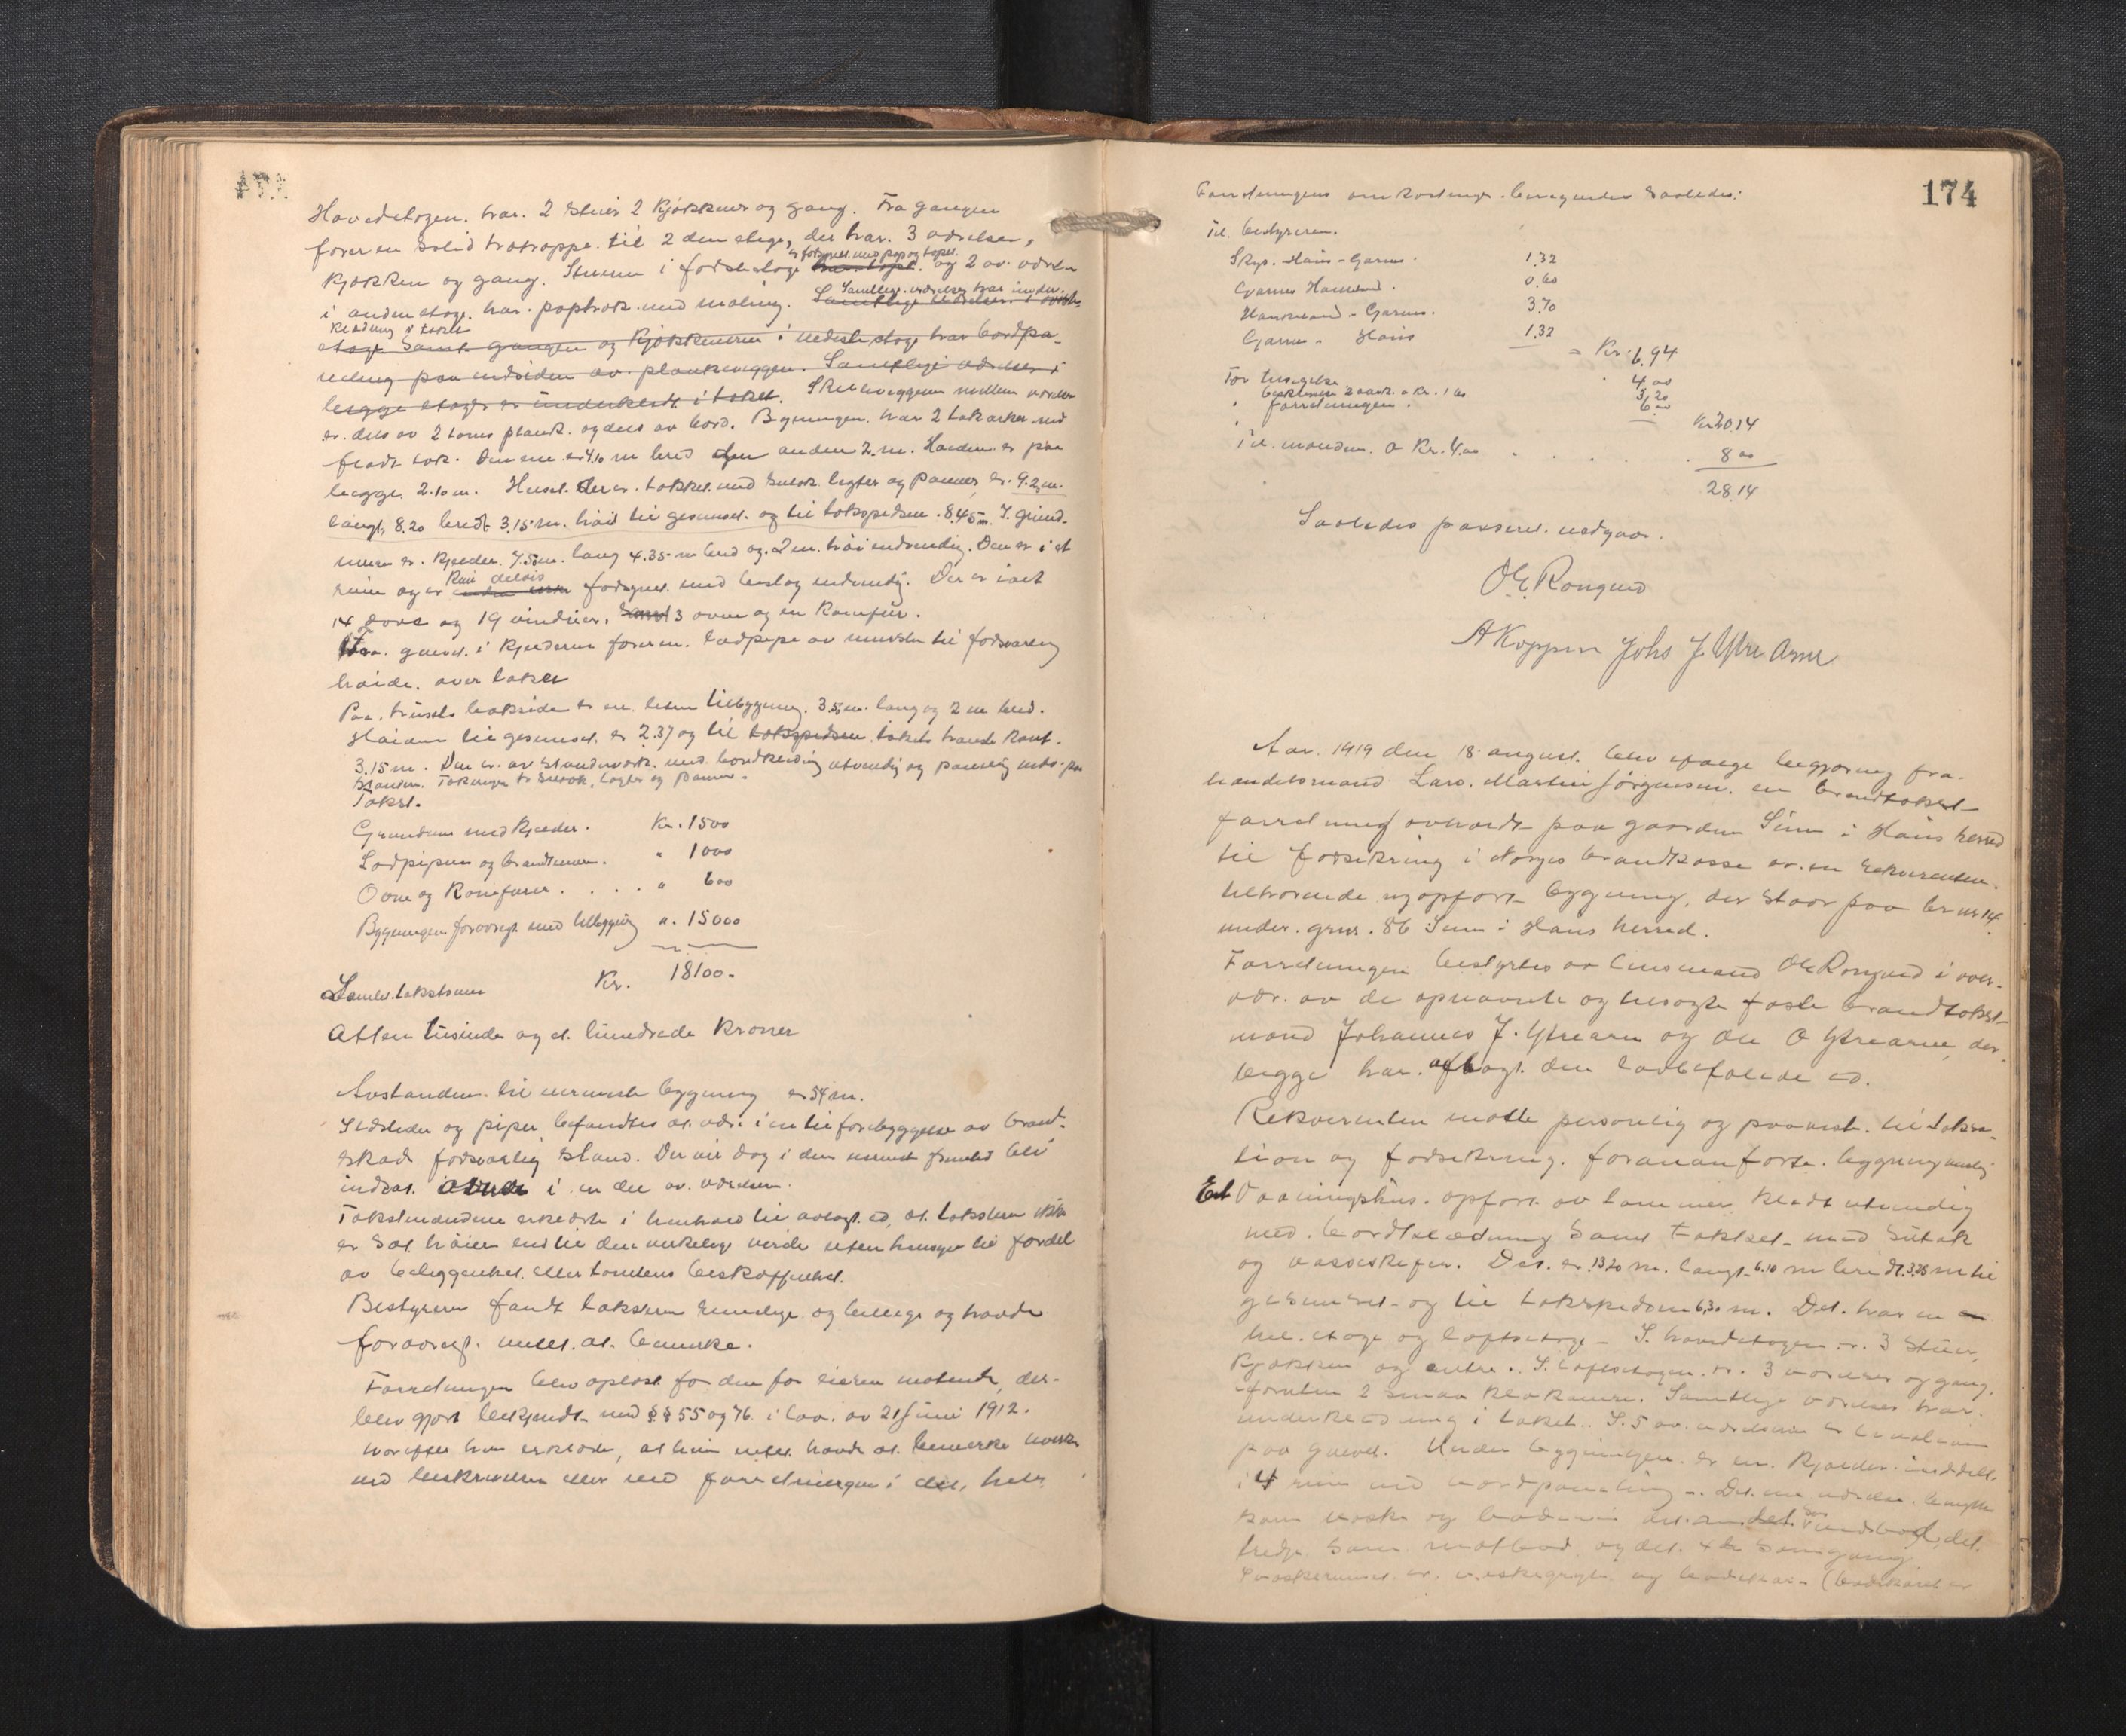 Hovedetagen har 2 stuer 2 kjøkkener og gang. Fra gangen
fører en solid trætrappe til 2den etage, der har 3 værelser,
er forsynet med pap og tapet.
kjøkken og gang. Stuerne i første etage og 2 av værel-
Samtlige værelser har under-
i anden etage har paptræk med maling. Samtlige værelser i øverste
klædning i taket
etage samt gangen og kjøkkenerne i nederste etage har bordpa-
neling paa indsiden av plankevæggen. Samtlige værelser i
begge etager er underklædt i taket. Skilleveggene mellem værelser
er dels av 2 toms plank og dels av bord. Bygningen har 2 takarker med
fladt tak. Den ene er 4.10 m bred den anden 2 m. Høiden er paa
begge 2.10 m. Huset der er tækket med sutak, legter og panner, er 9.2 m.
langt, 8.20 bredt 3.15 m. høit til gesimset og til takspidsen 8.45 m. I grund-
muren er kjelder 7.50 m. lang 4.35 m bred og 2 m. høi indvendig. Den er i et
Kun delvis
rum og er forsynet med beslag indvendig. Der er ialt
14 døre og 19 vinduer, samt 3 ovne og en komfur.
Fra gulvet i kjelderen fører en lodpipe av mursten til forsvarlig
høide over taket
Paa husets bakside er en liten tilbygging 3.5 m. lang og 2 m bred.
Høiden til gesimset er 2.37 og til takspidsen takets høieste kant
3.15 m. Den er av stenderverk med bordklædning utvendig og paneling indv. paa
stendere. Tækningen er sutak, legter og panner.
Takst.
Grundmur med kjelder. Kr. 1500
Lodpipen og brandmuren. " 1000
Ovne og Komfurer . . . . " 600
Bygningen forøvrigt med tilbygging " 15000
Samlet takstsum Kr. 18100.
Atten tusinde og et hundrede kroner
Avstanden til nærmeste bygning er 54 m.
Ildsteder og piper befandtes at være i en til forebyggelse av brand-
skade forsvarlig stand. Der vil dog i den nærmeste fremtid bli
indsat i en del av værelsen.
Takstmændene erklærte i henhold til avlagt ed, at taksten ikke
er sat høiere end til den virkelige verdi uten hensyn til fordel
av beliggenhet eller tomtens beskaffenhet.
Bestyreren fandt taksten rimelige og billige og havde
forøvrigt intet at bemerke.
Forretningen blev oplæst for den for eieren møtende, der
blev gjort bekjendt med §§ 55 og 76 i lov av 21 juni 1912.
hvorefter han erklærte, at han intet havde at bemerke hverken
ved beskrivelsen eller ved forretningen i det hele.
174
Forretningens omkostninger beregnedes saaledes:
Til bestyreren.
Skys. Haus - Garnes. 1.32
Garnes Hansund. 0.60
Hansund - Garnes. 3.70
Garnes - Haus 1.32
= Kr. 6.94
For tilsigelse " 4.00
" beskrivelse 2 ark a Kr. 1.60 3.20
" forretningen. 6.00
Kr 20.14
Til mændene a Kr. 4.00 . . . . 8.00
28.14
Saaledes passeret utgaar.
O E Rongved
A Koppen Johs J. Ytre Arne
Aar 1919 den 18 august blev ifølge begjæring fra
handelsmand Lars Martin Jørgensen en brandtakst-
forretning avholdt paa gaarden Seim i Haus herred
til forsikring i Norges brandkasse av en rekvirenten
tilhørende nyopført bygning, der staar paa br nr 14
under gnr. 86 Seim i Haus herred.
Forretningen bestyrtes av lensmand OE Rongved i over-
vær av de opnævnte og tilsagte faste brandtakst-
mænd Johannes J. Ytrearne og Ole O Ytrearne, der
begge har aflagt den lovbefalede ed.
Rekvirenten møtte personlig og paaviste til taksa-
tion og forsikring foranførte bygning nemlig
Et Vaaningshus opført av tømmer klædt utvendig
med bordklædning samt tækket med sutak
og vasseskifer. Det er 13.20 m. langt 6.10 m bredt 3.25 m til
gesimset og til takspidsen 6.30 m. Det har en
hel etage og loftsetage. I hovedetagen er 3 stuer,
kjøkken og entre. I loftsetagen er 3 værelser og gang,
foruten 2 smaa klækammer. Samtlige værelser har
underklædning i taket. I 5 av værelserne er linoleum
paa gulvet. Under bygningen er en kjelder inddelt
i 4 rum med bordpaneling. Det ene værelse benyttes
som vaske og baderum det andet som vedbod, det
tredje som matbod og det 4de som gang.
I vaskerummet er vaskegryte og badekar (badekaret er